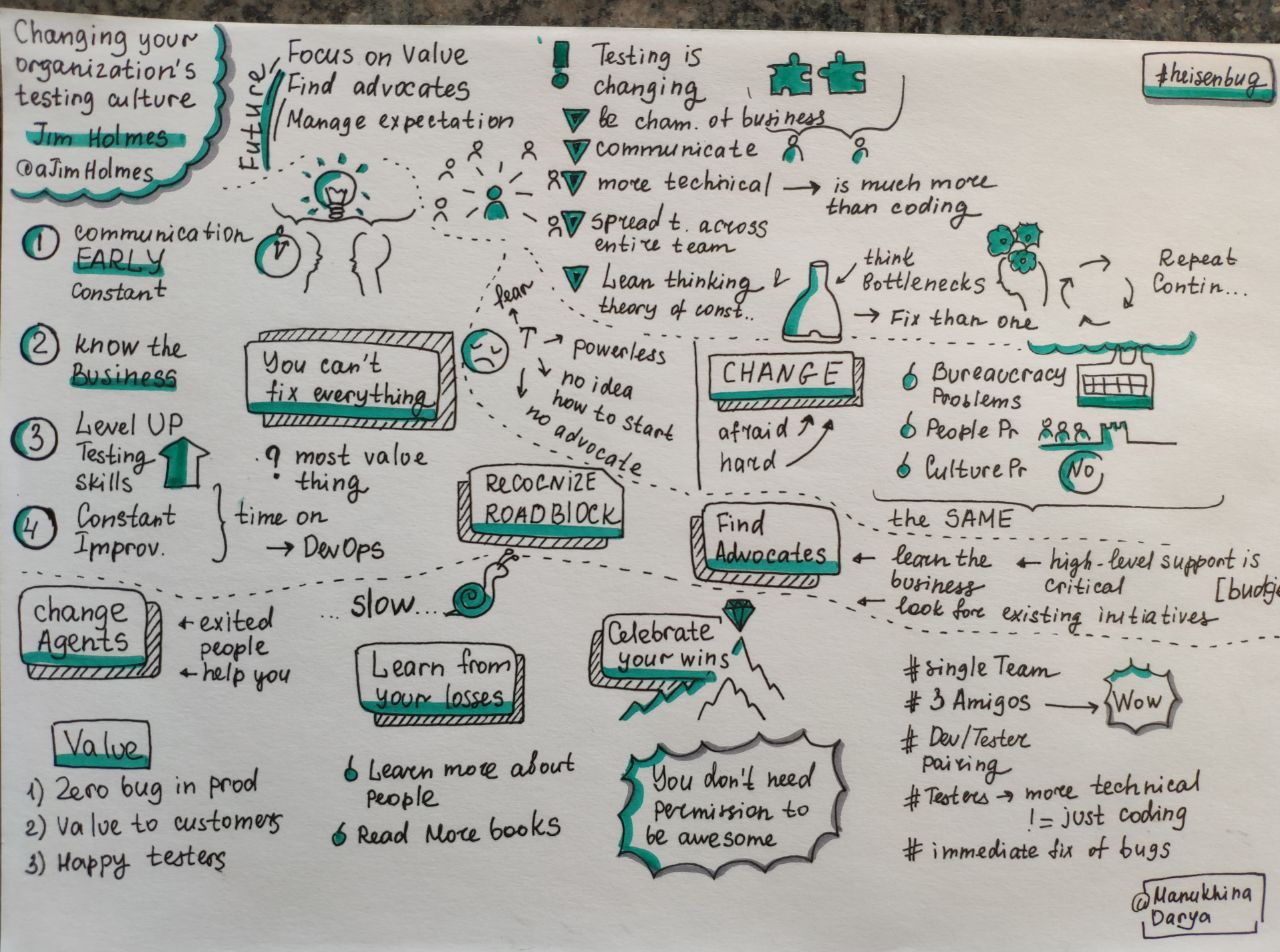 Changing your
organization's
testing culture
Jim Holmes
@aJimHolmes
Future
Focus on Value
Find advocates
Manage expectation
! Testing is
changing
be cham. of business
communicate
more technical → is much more
than coding
spread t. across
entire team
Lean thinking &
theory of const..
think
Bottlenecks
→ Fix than one
Repeat
Contin...
#heisenbug
1 communication
EARLY
constant
2 know the
Business
3 Level UP
Testing
skills
4 Constant
Improv.
time on
→ DevOps
You can't
fix everything
? most value
thing
fear
powerless
no idea
how to start
no advocate
RECOGNIZE
ROADBLOCK
CHANGE
afraid
hard
Bureaucracy
Problems
People Pr
Culture Pr
No
the SAME
Find
Advocates
← learn the
business
← high-level support is
critical
← look fore existing initiatives
change
Agents
← exited
people
← help you
... slow...
Learn from
your losses
Learn more about
people
Read More books
Celebrate
your wins
You don't need
permission to
be awesome
Value
1) Zero bug in prod
2) Value to customers
3) Happy testers
# single Team
# 3 Amigos → Wow
# Dev/Tester
pairing
# Testers → more technical
!= just coding
# immediate fix of bugs
@Manukhina
Darya